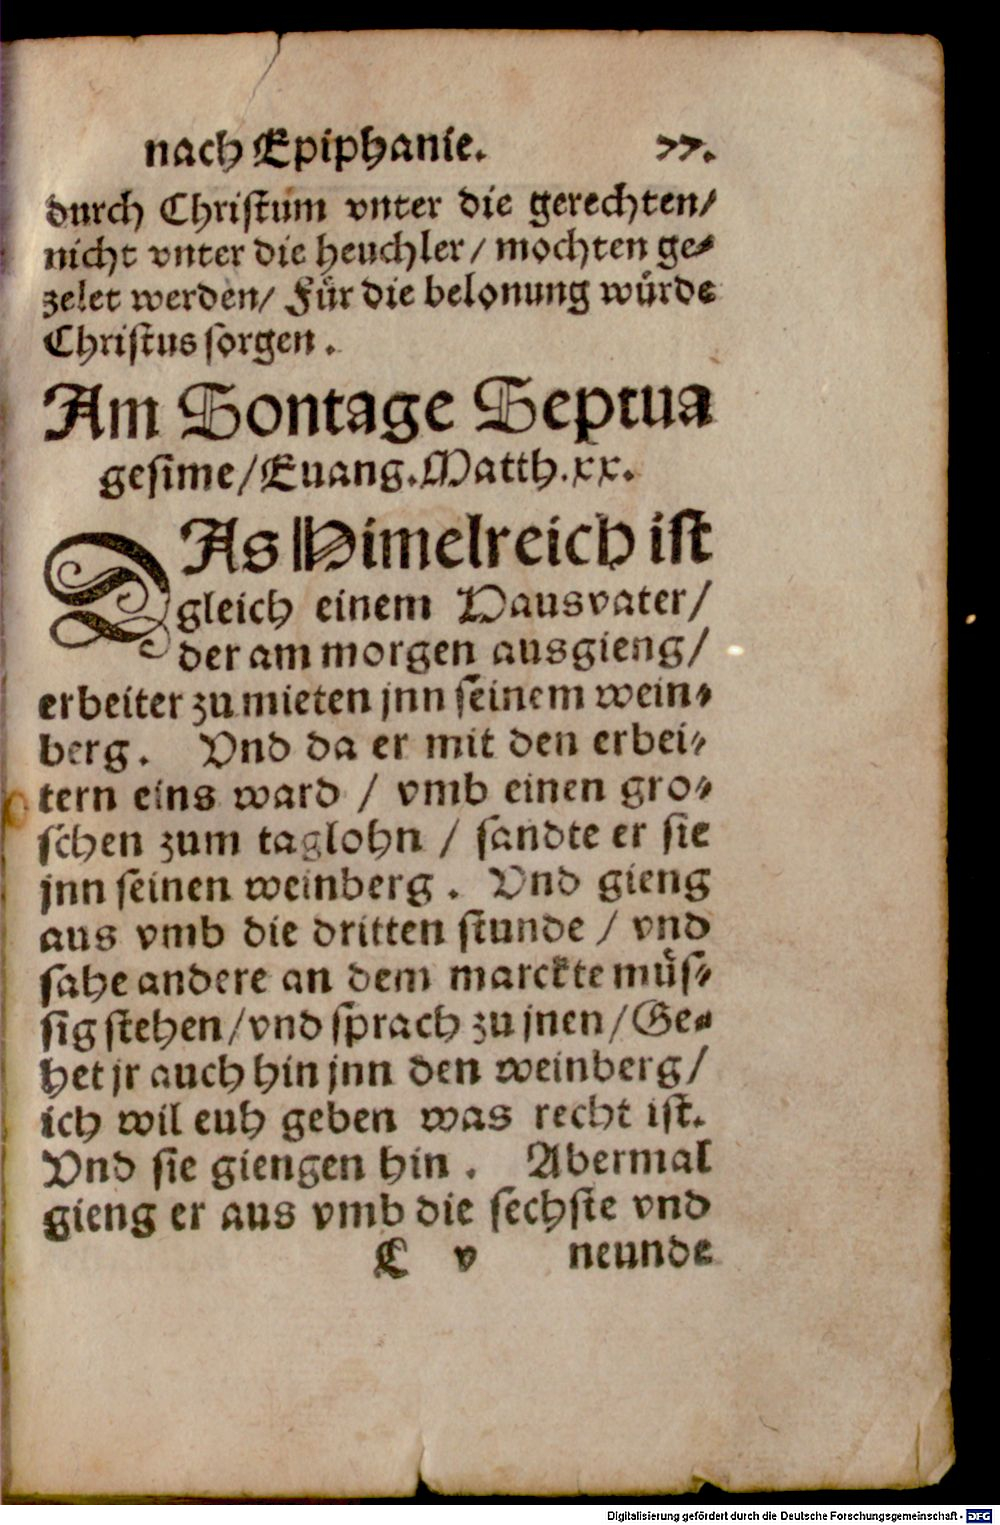 nach Epiphanie. 77.
durch Christum vnter die gerechten/
nicht vnter die heuchler/ mochten ge⸗
zelet werden/ Für die belonung würde
Christus sorgen.
Am Sontage Septua
gesime/Euang.Matth.xx.
DAs Himelreich ist
gleich einem Hausvater/
der am morgen ausgieng/
erbeiter zu mieten jnn seinem wein⸗
berg. Vnd da er mit den erbei⸗
tern eins ward / vmb einen gro⸗
schen zum taglohn / sandte er sie
jnn seinen weinberg. Vnd gieng
aus vmb die dritten stunde / vnd
sahe andere an dem marckte müs⸗
sig stehen/vnd sprach zu jnen/Ge⸗
het jr auch hin jnn den weinberg/
ich wil euh geben was recht ist.
Vnd sie giengen hin. Abermal
gieng er aus vmb die sechste vnd
C v neunde
Digitalisierung gefördert durch die Deutsche Forschungsgemeinschaft - DFG